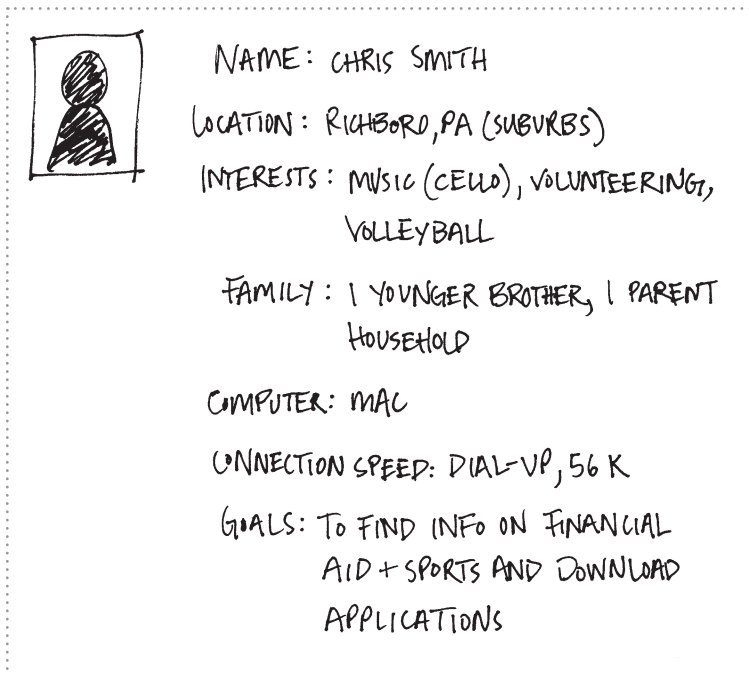 NAME: CHRIS SMITH
LOCATION: RICHBORO, PA (SUBURBS)
INTERESTS: MUSIC (CELLO), VOLUNTEERING,
VOLLEYBALL
FAMILY: 1 YOUNGER BROTHER, 1 PARENT
HOUSEHOLD
COMPUTER: MAC
CONNECTION SPEED: DIAL-UP, 56 K
GOALS: TO FIND INFO ON FINANCIAL
AID + SPORTS AND DOWNLOAD
APPLICATIONS